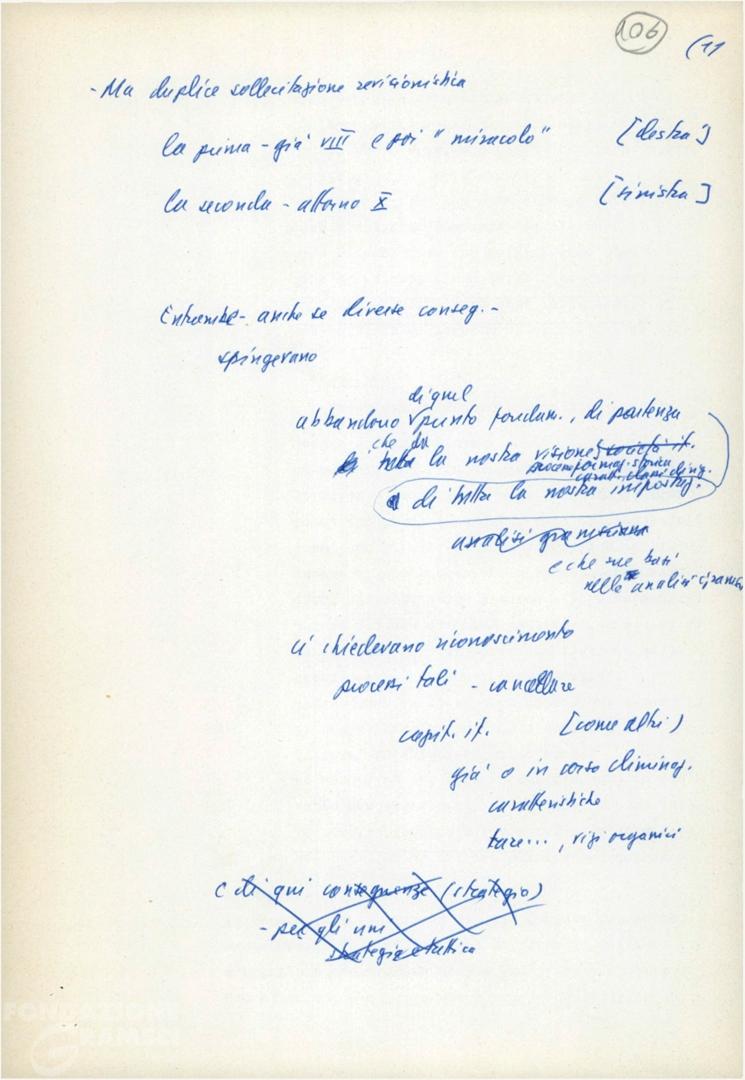 106
(11
- Ma duplice sollecitazione revisionistica
la prima - già VIII e poi "miracolo" [destra]
la seconda - attorno X [sinistra]
Entrambe - anche se diverse conseg. -
spingevano
di quel
abbandono punto fondam., di partenza
che da
tutta la nostra visione società it.
storica
di tutta la nostra impostaz.
analisi gramsciana
e che sue basi
nelle analisi
ci chiedevano riconoscimento
processi tali - cancellare
capit. it. [come altri)
già o in corso eliminaz.
caratteristiche
tare..., vizi organici
e di qui conseguenze (strategia)
- per gli uni
strategia e tattica
FONDAZIONE
GRAMSCI